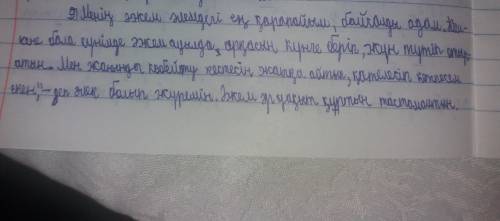 Менің әжем әлемдегі ең қарапайым, байқампаз адам. Кіш-
кене бала күнімде әжем ауылда, арқасын күнге беріп, жүн түтіп отыр
атын. Мен жанында көбейту кестесін жатқа айтып, қателесіп кетпесем
екен," - деп әлек болып жүремін. Әжем әр уақыт құртын тастамайтын.